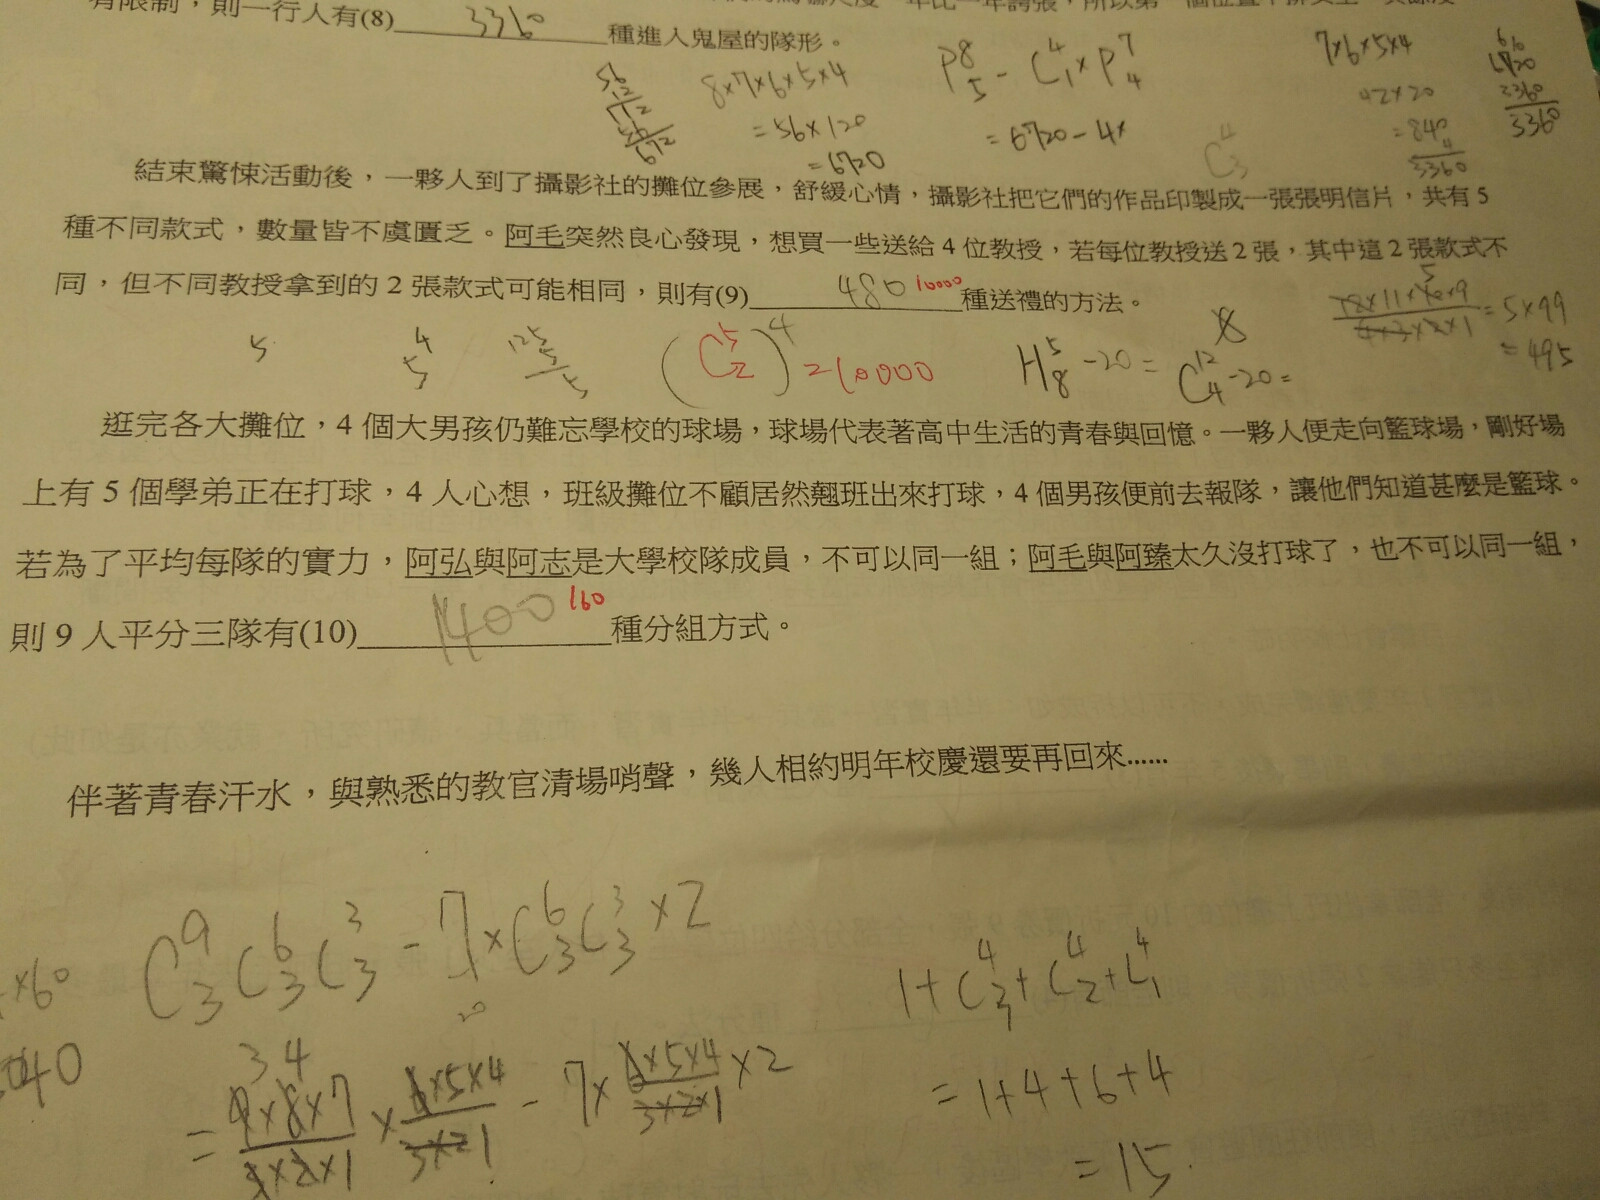 有限制，則一行人有(8) 3360 種進入鬼屋的隊形。
8×7×6×5×4
=56×120
=6720
P⁸₅ - C⁴₁×P⁷₄
=6720-4×
C⁴₃
7×6×5×4
42×20
=840
4
3360
6720
3360
3360
結束驚悚活動後，一夥人到了攝影社的攤位參展，舒緩心情，攝影社把它們的作品印製成一張張明信片，共有5
種不同款式，數量皆不虞匱乏。阿毛突然良心發現，想買一些送給4位教授，若每位教授送2張，其中這2張款式不
同，但不同教授拿到的2張款式可能相同，則有(9) 480 10000 種送禮的方法。
5
4
5
125
5
(C⁵₂)⁴=10000
H⁵₈-20=C¹²₄-20=
12×11×10×9
4×3×2×1
=5×99
=495
逛完各大攤位，4個大男孩仍難忘學校的球場，球場代表著高中生活的青春與回憶。一夥人便走向籃球場，剛好場
上有5個學弟正在打球，4人心想，班級攤位不顧居然翹班出來打球，4個男孩便前去報隊，讓他們知道甚麼是籃球。
若為了平均每隊的實力，阿弘與阿志是大學校隊成員，不可以同一組；阿毛與阿臻太久沒打球了，也不可以同一組，
則9人平分三隊有(10) 1400 160 種分組方式。
伴著青春汗水，與熟悉的教官清場哨聲，幾人相約明年校慶還要再回來......
C⁹₃C⁶₃C³₃-7×C⁶₃C³₃×2
×60
40
20
3 4
=9×8×7/3×2×1×6×5×4/3×2×1-7×6×5×4/3×2×1×2
1+C⁴₃+C⁴₂+C⁴₁
=1+4+6+4
=15